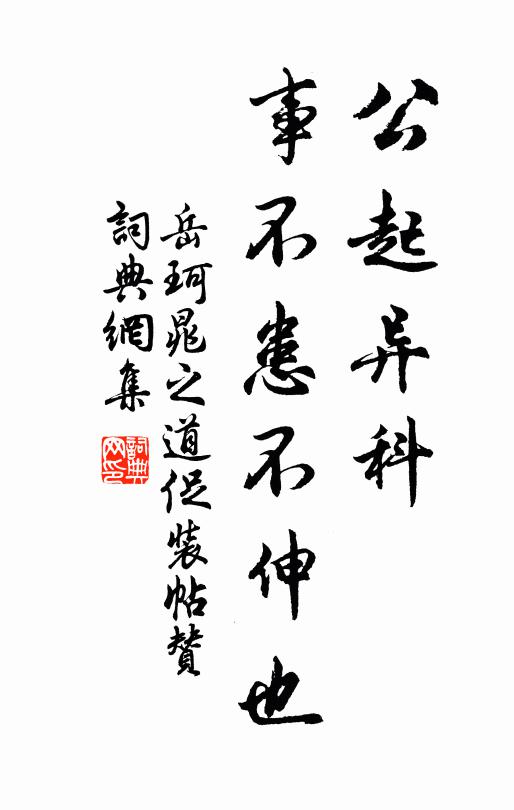 公起异科
事不患不伸也
岳珂晁之道促装帖赞
詞典網集
詞典網印